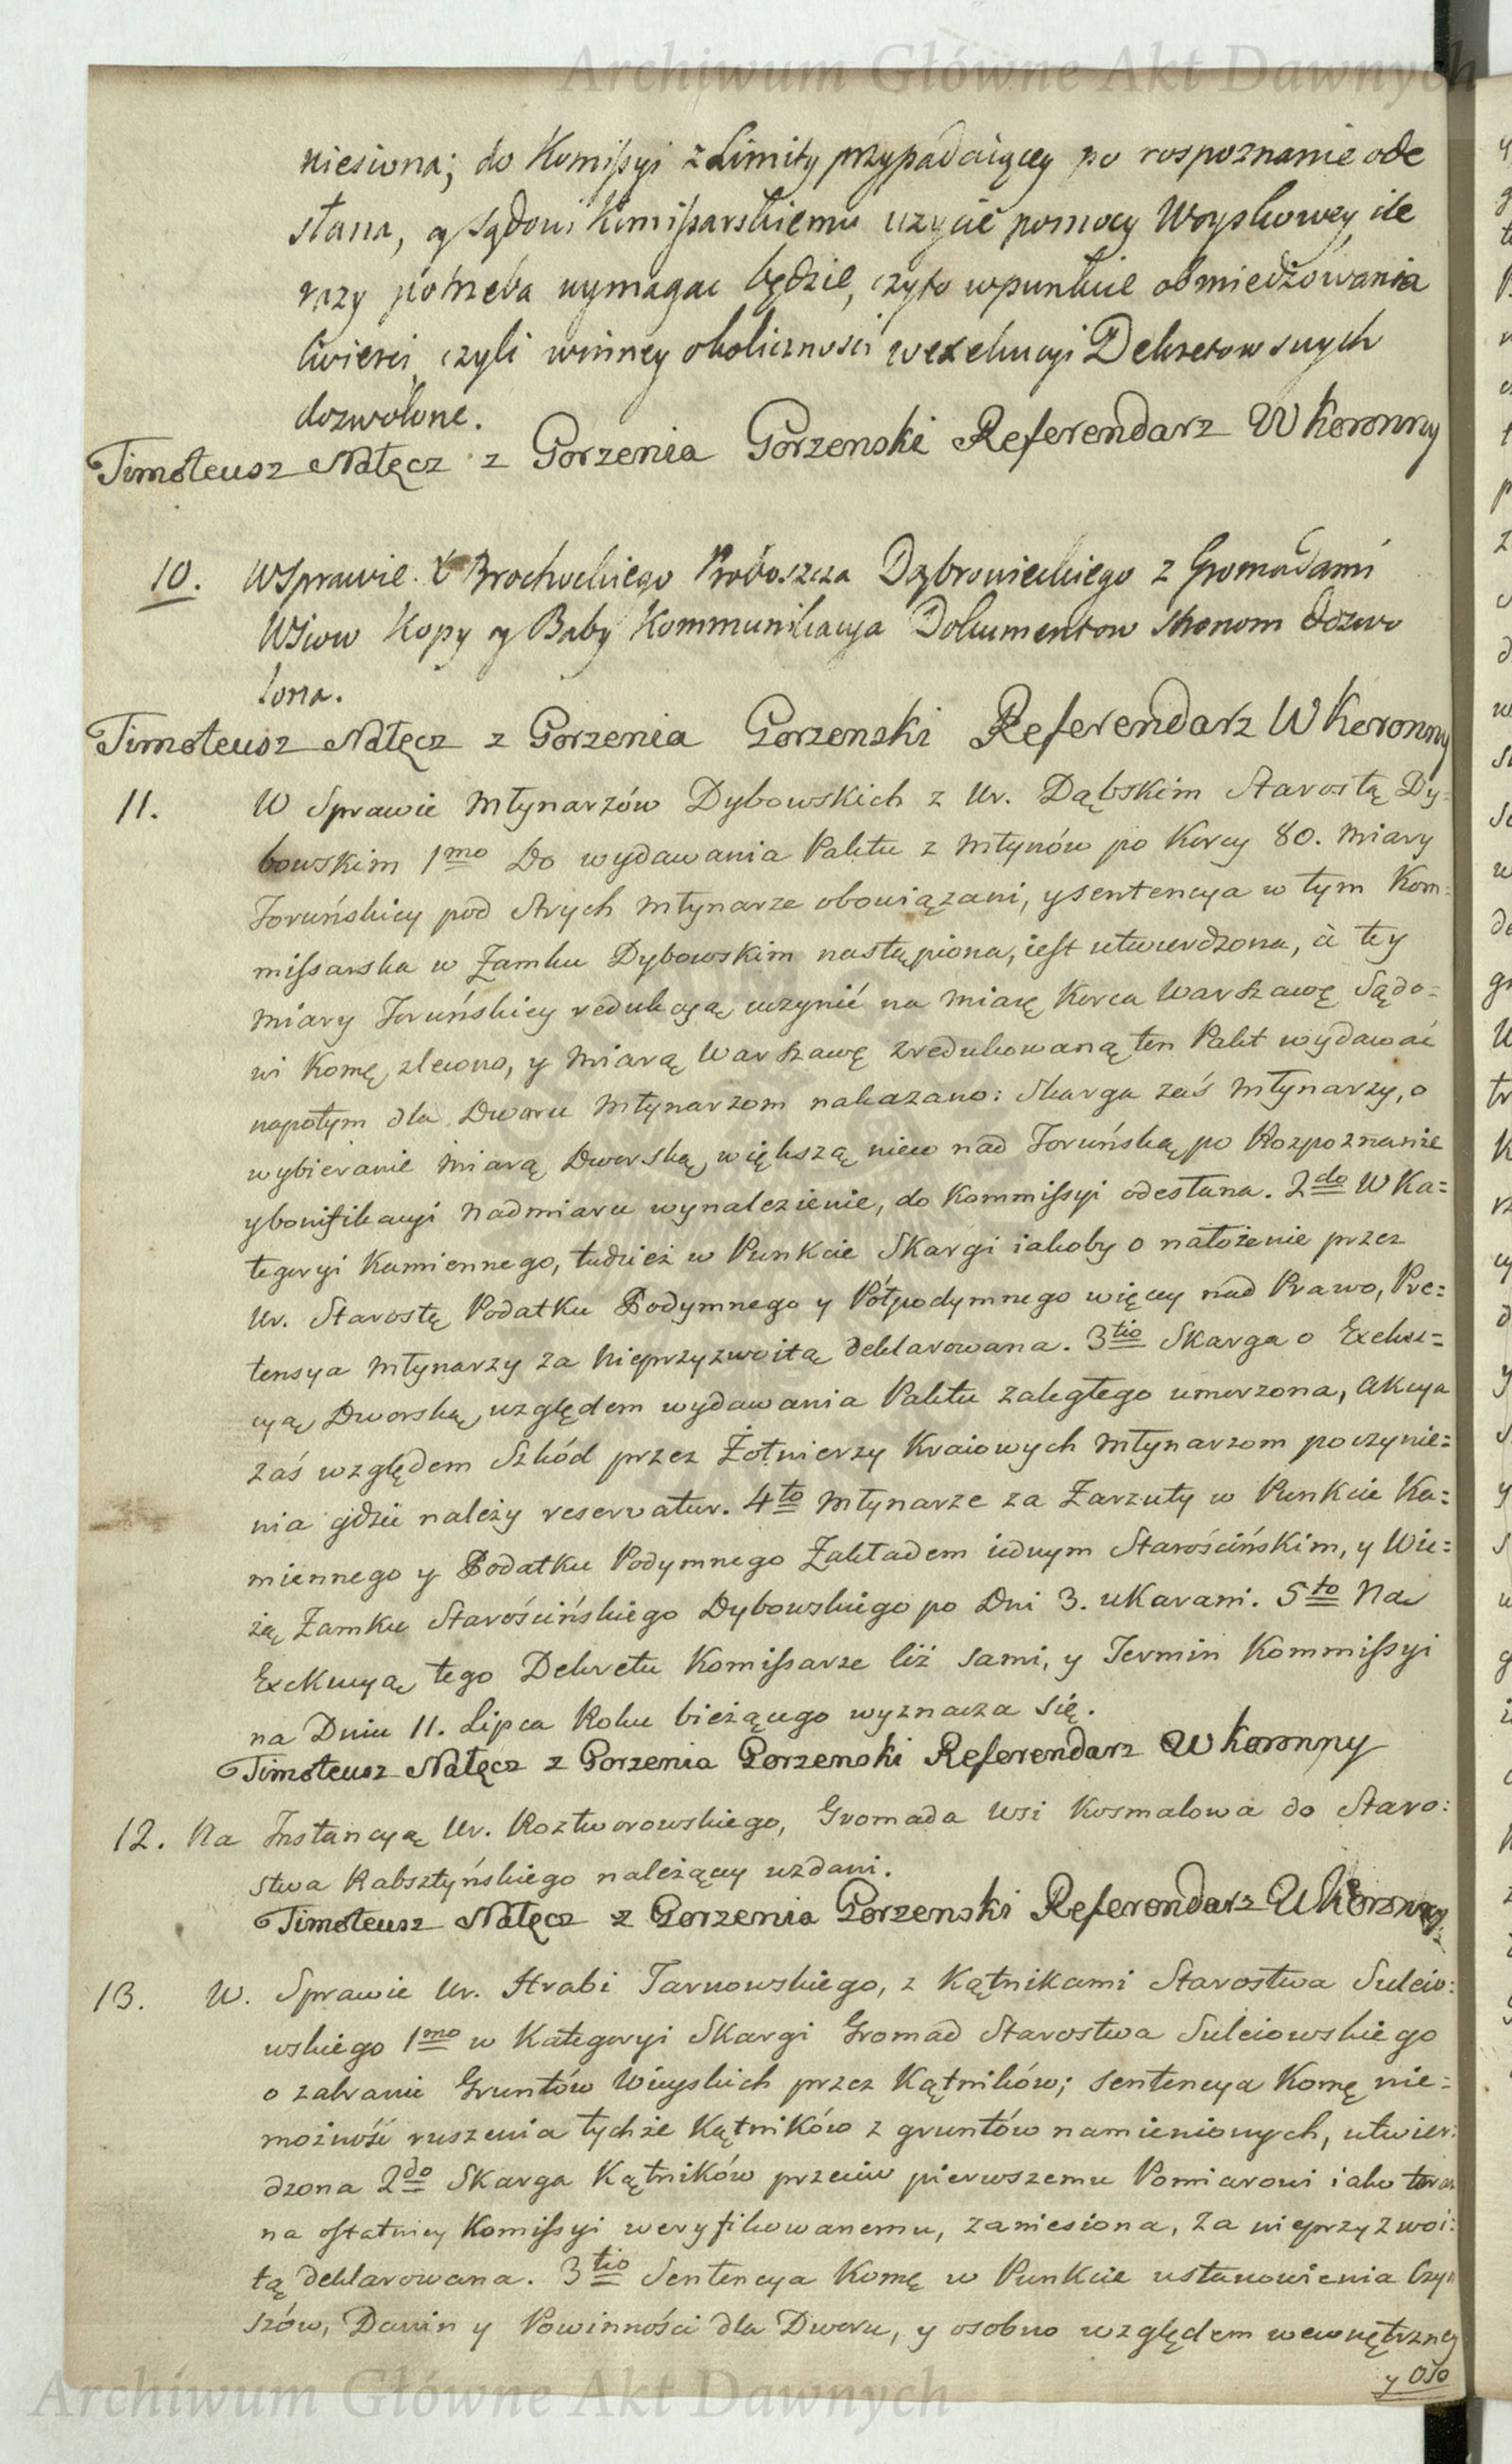 Archiwum Główne Akt Dawnych
niesiona; do Komissyi z Limity przypadaiącey po rospoznanie ode
słana, y Sądowi Kommissarskiemu uzycie pomocy Woyskowey ile
razy potrzeba wymagac będzie, czyto wpunkcie obmiedzowania
cwierci, czyli winney okolicznosci wexekucyi Dekretow swych
dozwolone.
Timoteusz Nałęcz z Gorzenia Gorzenski Referendarz W Koronny
10. WSprawie X Brochockiego Proboszcza Dąbrowieckiego z Gromadami
Wsiow Kopy y Baby Kommunikacya Dokumentow Stronom dozwo
lona.
Timoteusz Nałęcz z Gorzenia Gorzenski Referendarz W Koronny
11. W Sprawie Młynarzów Dybowskich z Ur. Dąbskim Starostą Dy=
bowskim 1mo Do wydawania Paktu z Młynów po Korcy 80. Miary
Toruńskiey pod Strych Młynarze obowiązani, y sentencya w tym Kom=
missarska w Zamku Dybowskim nastąpiona, iest utwierdzona, à tey
Miary Toruńskiey redukcyą uczynić na Miarę Korca Warszawę Sądo=
wi Komę zlecono, y Miarą Warszawę zredukowaną ten Pakt wydawać
napotym dla Dworu Młynarzom nakazano: Skarga zaś Młynarzy, o
wybieranie Miarą Dworską większą niew nad Toruńską, po Rozpoznanie
y bonifikacyi Nadmiaru wynalezienie, do Kommissyi odesłana. 2do W Ka=
tegoryi Kamiennego, tudzież w Punkcie Skargi iakoby o nałożenie przez
Ur. Starostę Podatku Podymnego y Półpodymnego więcey nad Prawo, Pre=
tensya Młynarzy za nieprzyzwoitą deklarowana. 3tio Skarga o Exeku=
cyą Dworską względem wydawania Paktu zaległego umorzona, Akcya
zaś względem Szkód przez Żołnierzy Kraiowych Młynarzom poczynie=
nia gdzie należy reservatur. 4to Młynarze za Zarzuty w Punkcie Ka=
miennego y Podatku Podymnego Zakładem iednym Starościńskim, y Wie=
żą Zamku Starościńskiego Dybowskiego po Dni 3. ukarani. 5to Na
Exekucyą tego Dekretu Komissarze ciż sami, y Termin Kommissyi
na Dniu 11. Lipca Roku bieżącego wyznacza się.
Timoteusz Nałęcz z Gorzenia Gorzenski Referendarz W Koronny
12. Na Instancyą Ur. Roztworowskiego, Gromada Wsi Kosmalowa do Staro:
stwa Rabsztyńskiego należącey wzdani.
Timoteusz Nałęcz z Gorzenia Gorzenski Referendarz W Koronny
13. W. Sprawie Ur. Hrabi Tarnowskiego, z Kątnikami Starostwa Suleio:
wskiego 1mo w Kategoryi Skargi Gromad Starostwa Suleiowskiego
o zabranie Gruntów Wieyskich przez Kątników; Sentencya Komę nie=
możność ruszenia tychże Kątników z gruntów namienionych, utwier:
dzona 2do Skarga Kątników przeciw pierwszemu Pomiarowi iako
na ostatniey Komissyi weryfikowanemu, zaniesiona, za nieprzyzwoi:
tą deklarowana. 3tio Sentencya Komę w Punkcie ustanowienia Czyn
szów, Danin y Powinności dla Dworu, y osobno względem wewnętrzney
y Oso
Archiwum Główne Akt Dawnych